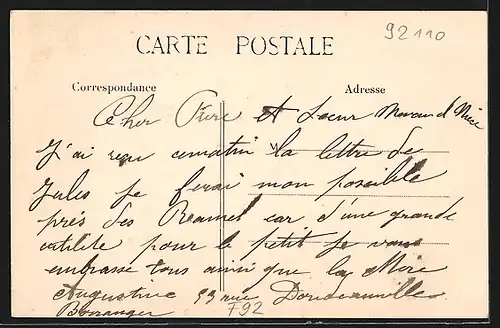 92110
CARTE POSTALE
Correspondance
Adresse
Cher Frere et Soeur
J'ai reçu cematin la lettre de
Jules je ferai mon possible
près des car d'une grande
utilite pour le petit je vous
embrasse tous ainsi que la Mère
Augustine 53 rue Doudeauville
Boiranger
F92